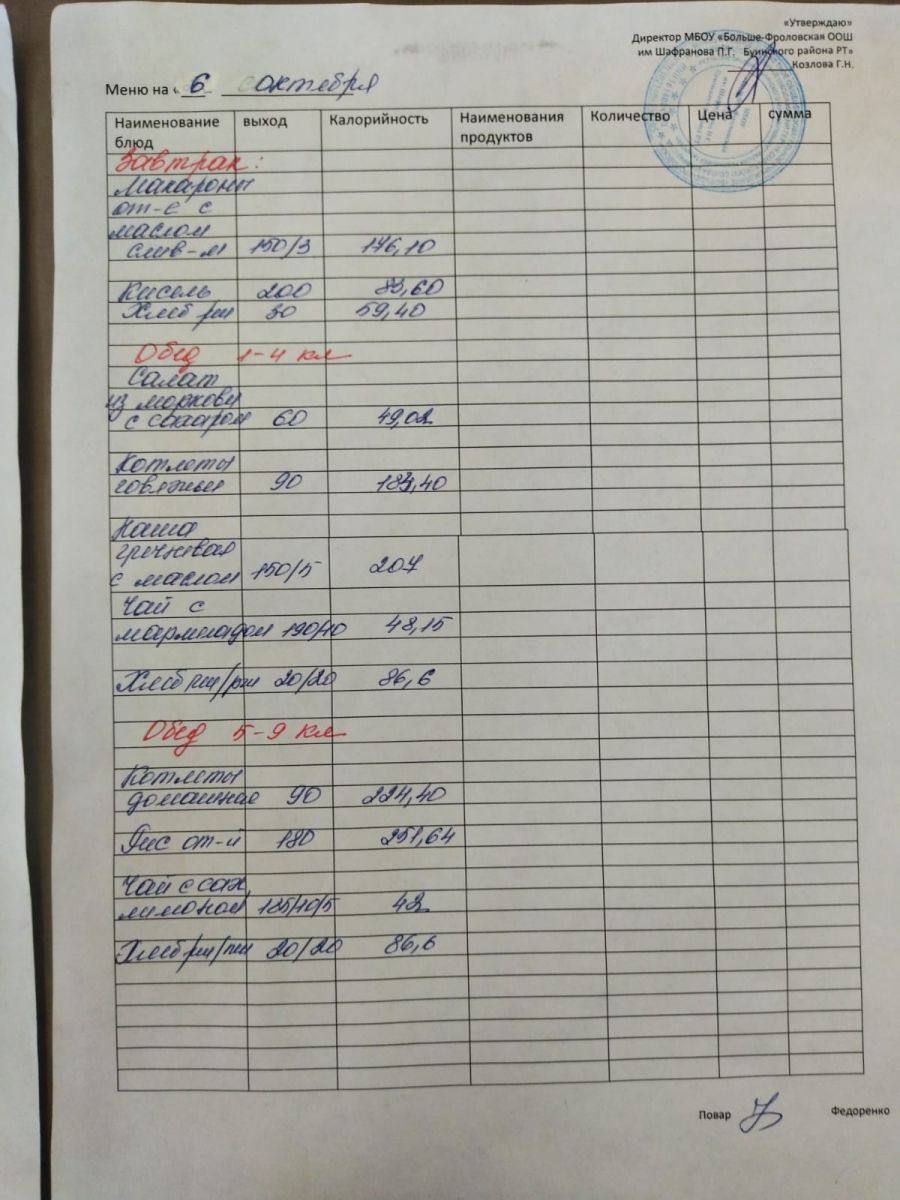 «Утверждаю»
Директор МБОУ «Больше-Фроловская ООШ
им Шафранова П.Г. Буинского района РТ»
Козлова Г.Н.
Меню на «6 октября
Наименование блюд выход Калорийность Наименования продуктов Количество Цена сумма
Завтрак:
Макароны
от-е с
маслом
слив-м 150/3 176,10
Кисель 200 83,60
Хлеб рш 30 59,40
Обед 1-4 кл
Салат
из моркови
с сахаром 60 49,02
Котлеты
говяжьи 90 183,40
Каша
гречневая
с маслом 150/5 207
Чай с
мармеладом 190/10 48,15
Хлеб пш/рш 20/20 86,6
Обед 5-9 кл
Котлеты
домашние 90 224,40
Рис от-й 180 251,64
Чай с сах,
лимоном 185/10/5 42
Хлеб рш/пш 20/20 86,6
Повар Федоренко